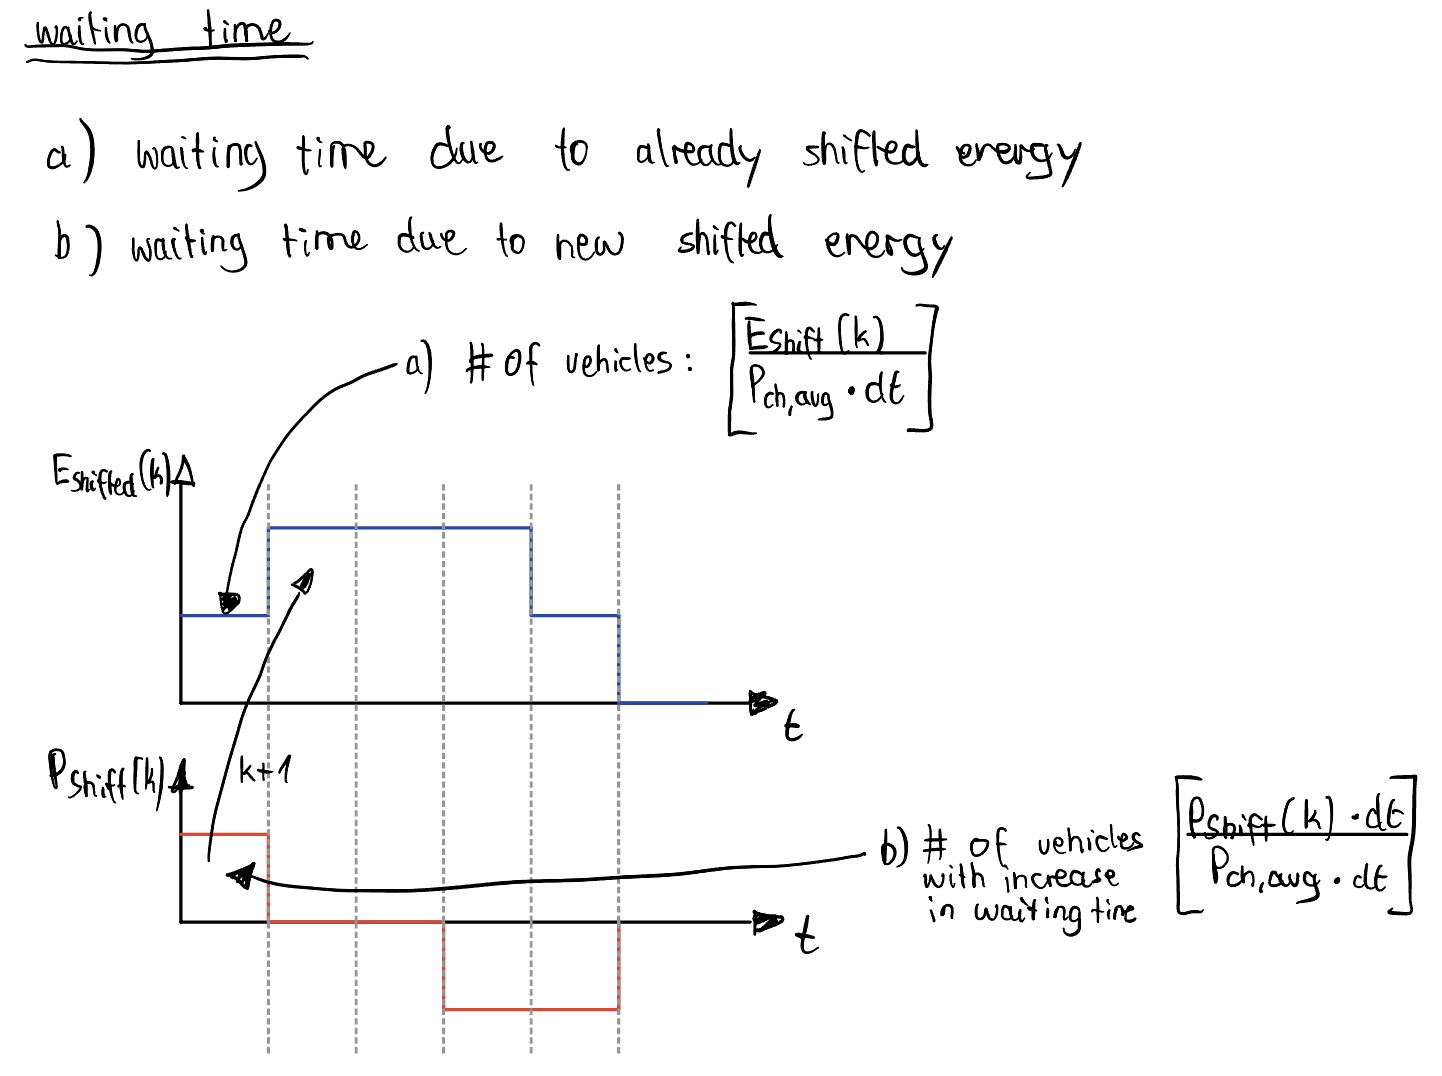 waiting time
a) waiting time due to already shifted energy
b) waiting time due to new shifted energy
a) # of vehicles: [Eshift(k) / Pch,avg · dt]
Eshifted(k)
t
Pshift(k)
k+1
b) # of vehicles
with increase
in waiting time
[Pshift(k) · dt / Pch,avg · dt]
t